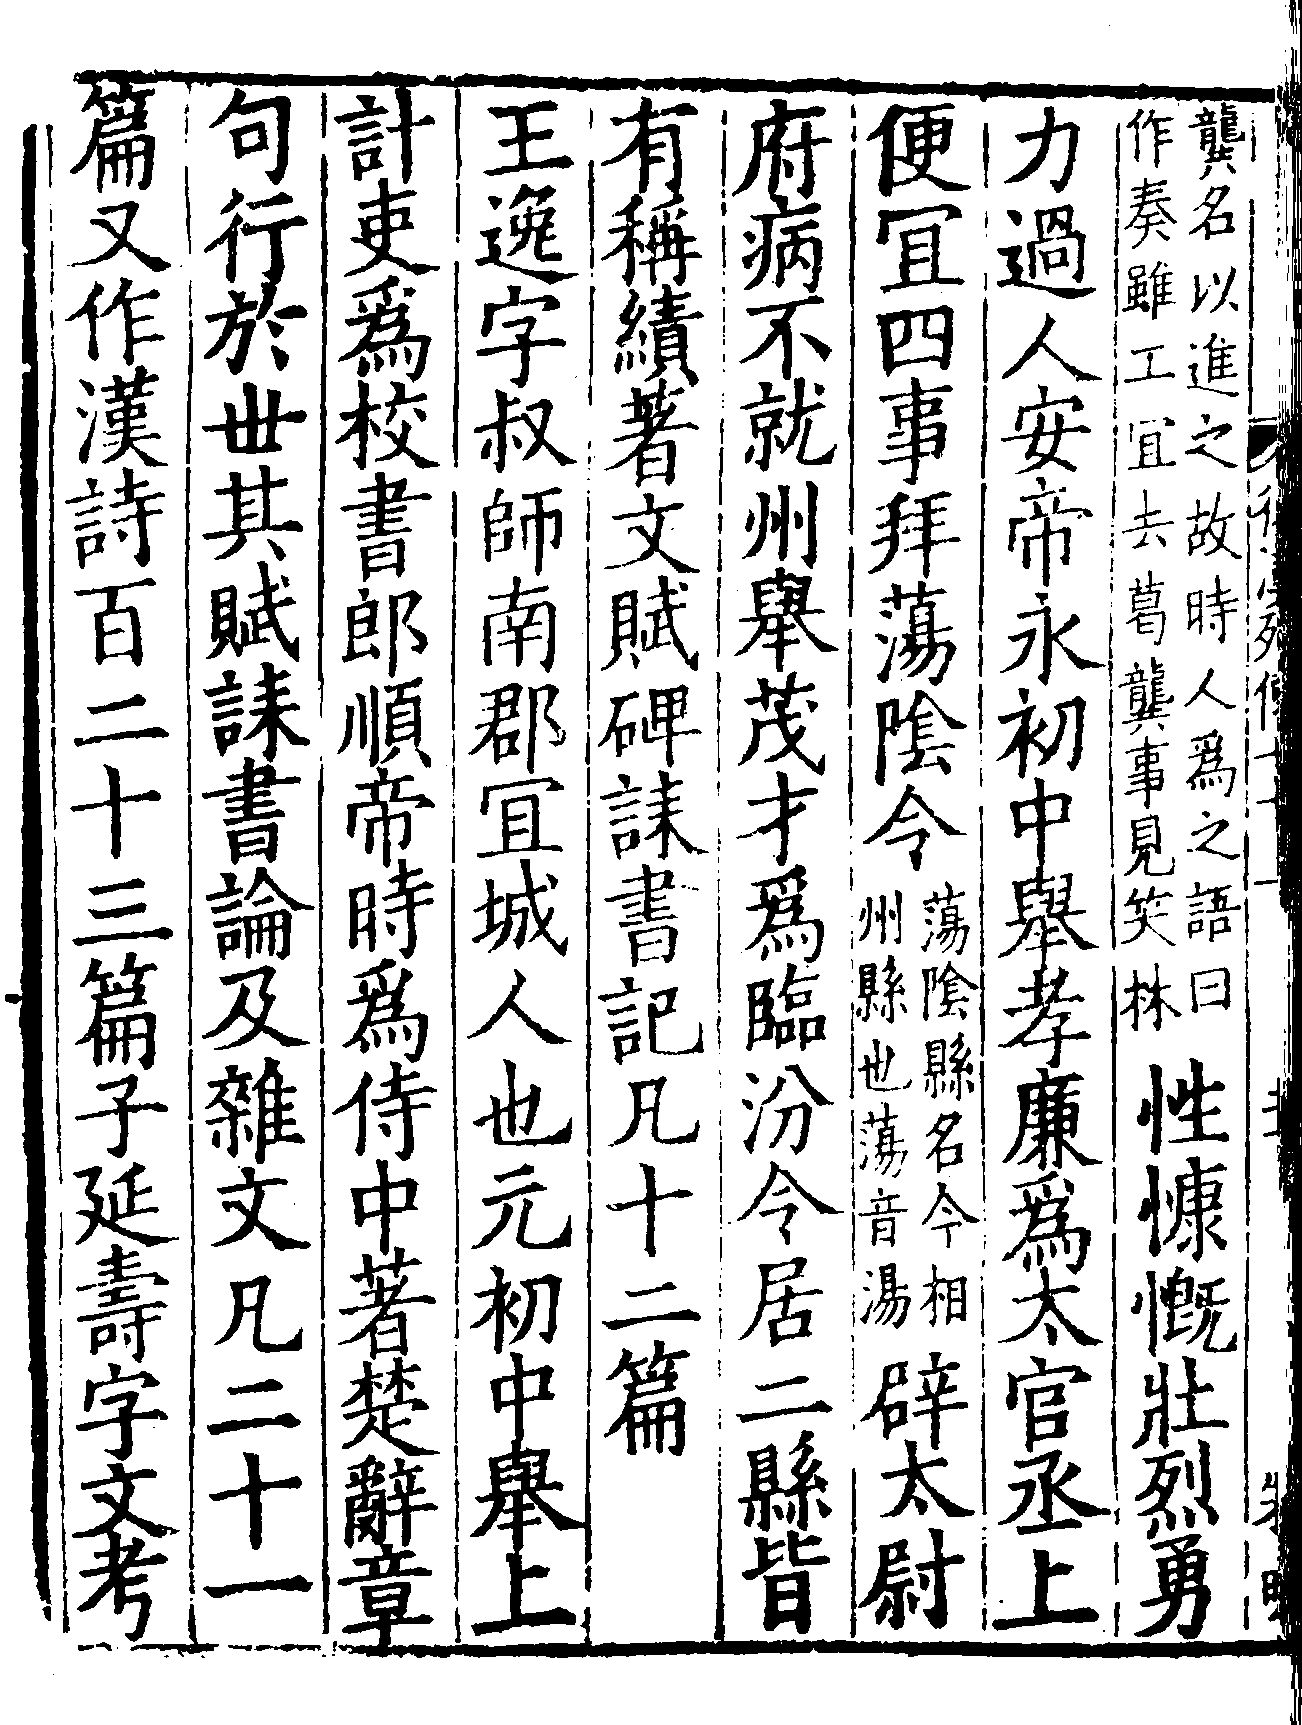 龔名以進之故時人爲之語曰
作奏雖工冝去葛龔事見笑林
性慷慨壯烈勇
力過人安帝永初中舉孝廉爲太官丞上
便冝四事拜蕩陰令
蕩陰縣名今相
州縣也蕩音湯
辟太尉
府病不就州舉茂才爲臨汾令居二縣皆
有稱績著文賦碑誄書記凡十二篇
王逸字叔師南郡冝城人也元初中舉上
計吏爲校書郎順帝時爲侍中著楚辭章
句行於丗其賦誄書論及雜文凡二十一
篇又作漢詩百二十三篇子延壽字文考